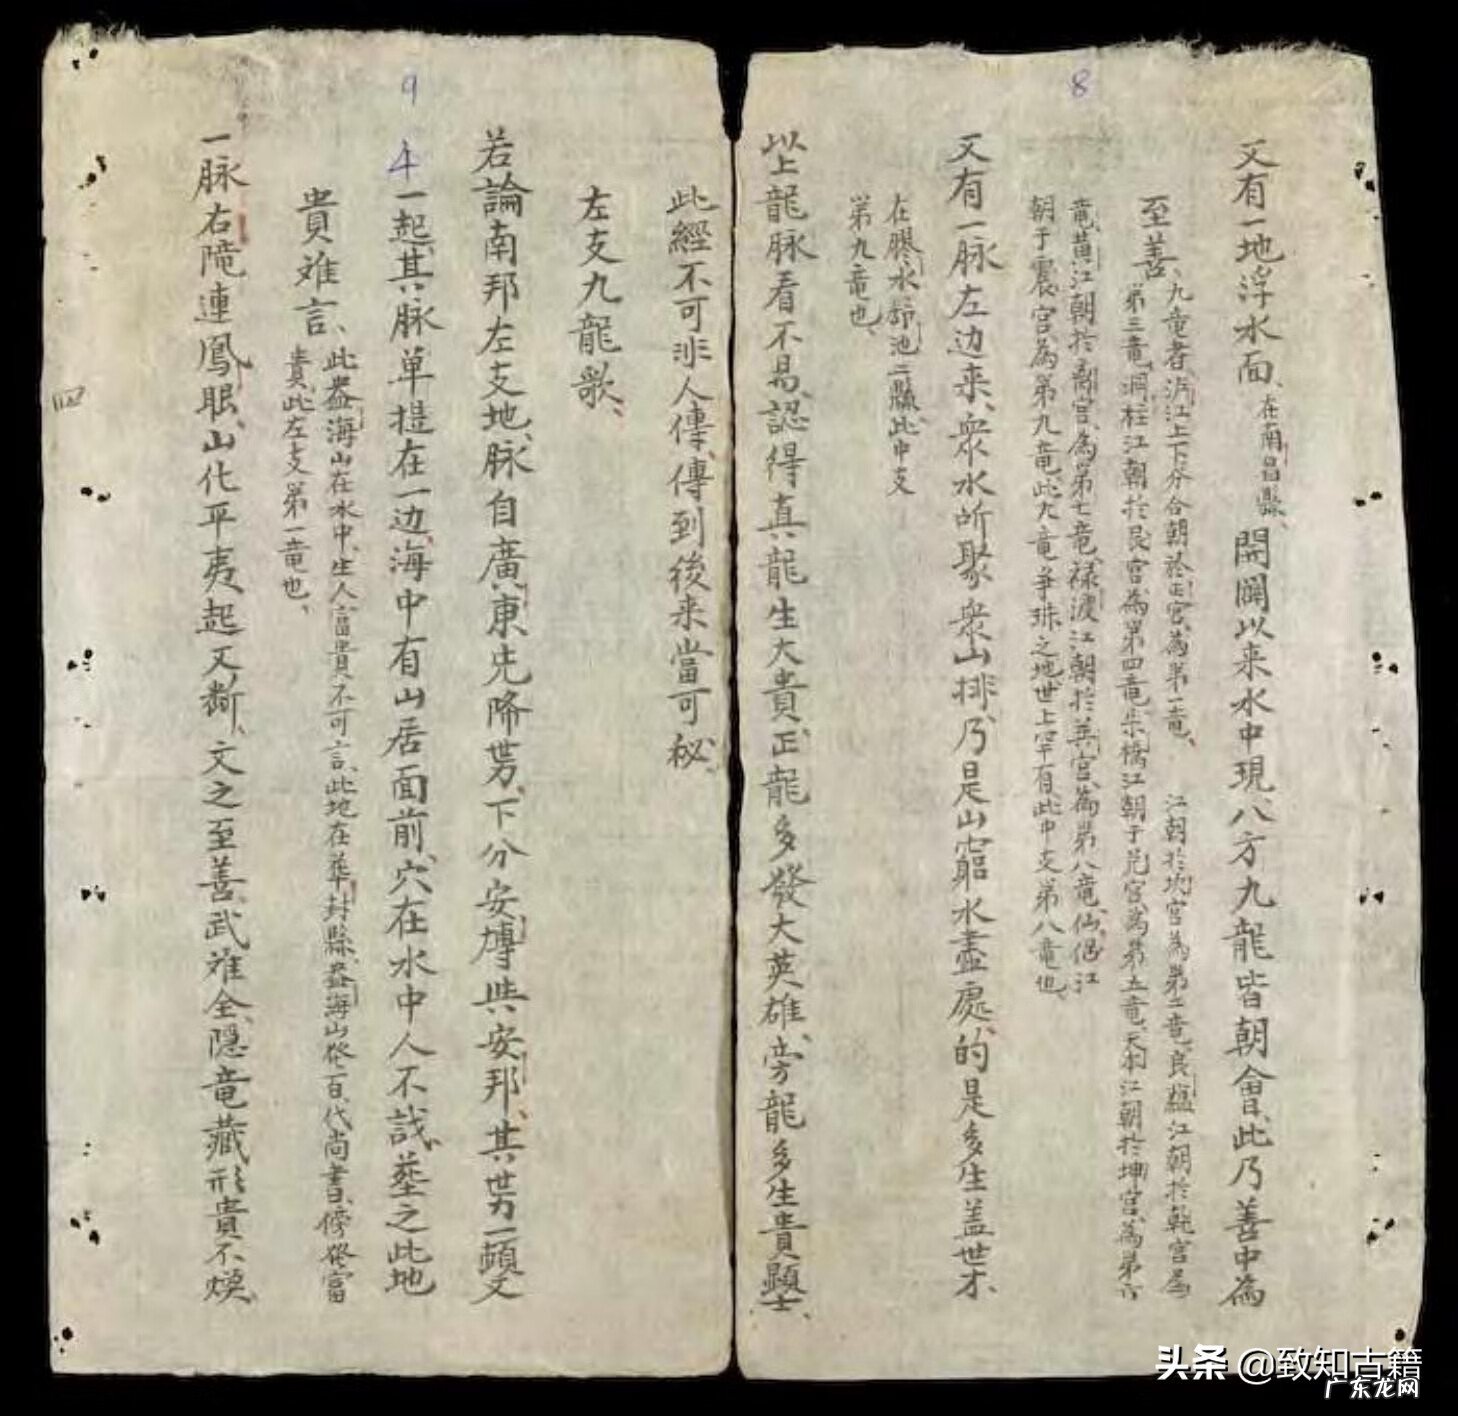 8
又有一地浮水面、在南昌縣、開闢以来水中現、八方九龍皆朝會、此乃善中為
至善、九竜者、沔江上下分合朝於正宮、為第一竜、江朝於坎宮為第二竜、良縕江朝於乾宮為
第三竜、洞柱江朝於艮宮、為第四竜、朱橋江朝于兌宮、為第五竜、天本江朝於坤宮、為第六
竜、黄江朝於离宮、為第七竜、禄渡江朝於巽宮、為第八竜、仙侶江
朝于震宮、為第九竜、此九竜争珠之地、世上罕有、此中支第八竜也、
又有一脉左边来、衆水所聚衆山排、乃是山窮水盡處、的是多生盖世才、
在膠水舒池二縣、此中支
第九竜也、
以上龍脉看不易、認得真龍生大貴、正龍多發大英雄、旁龍多生貴顯士、
此經不可非人傳、傳到後来當可秘、
9
左支九龍歌、
若論南邦左支地、脉自廣東先降势、下分安博與安邦、其势一頓又
一起、其脉单提在一边、海中有山居面前、穴在水中人不識、葬之此地
貴难言、此盎海山在水中、生人富貴不可言、此地在華封縣、盎海山發百代尚書、傍發富
貴、此左支第一竜也、
一脉右障連鳳眼、山化平夷起又断、文之至善武难全、隠竜藏形貴不煥、
四
头条 @致知古籍
广东龙网